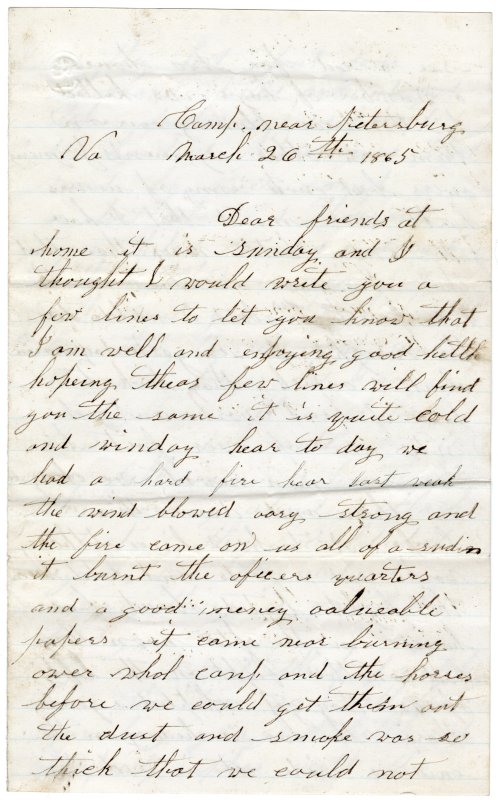 Camp, near Petersburg
Va March 26th 1865
Dear friends at
home it is sunday and I
thought I would write you a
few lines to let you know that
I am well and enjoying good helth
hopeing theas few lines will find
you the same it is quite cold
and winday hear to day we
had a hard fire hear last weak
the wind blowed vary strong and
the fire came on us all of a sudin
it burnt the oficers quarters
and a good meney valueable
papers it came near burning
ower whol camp and the horses
before we could get them out
the dust and smoke was so
thick that we could not